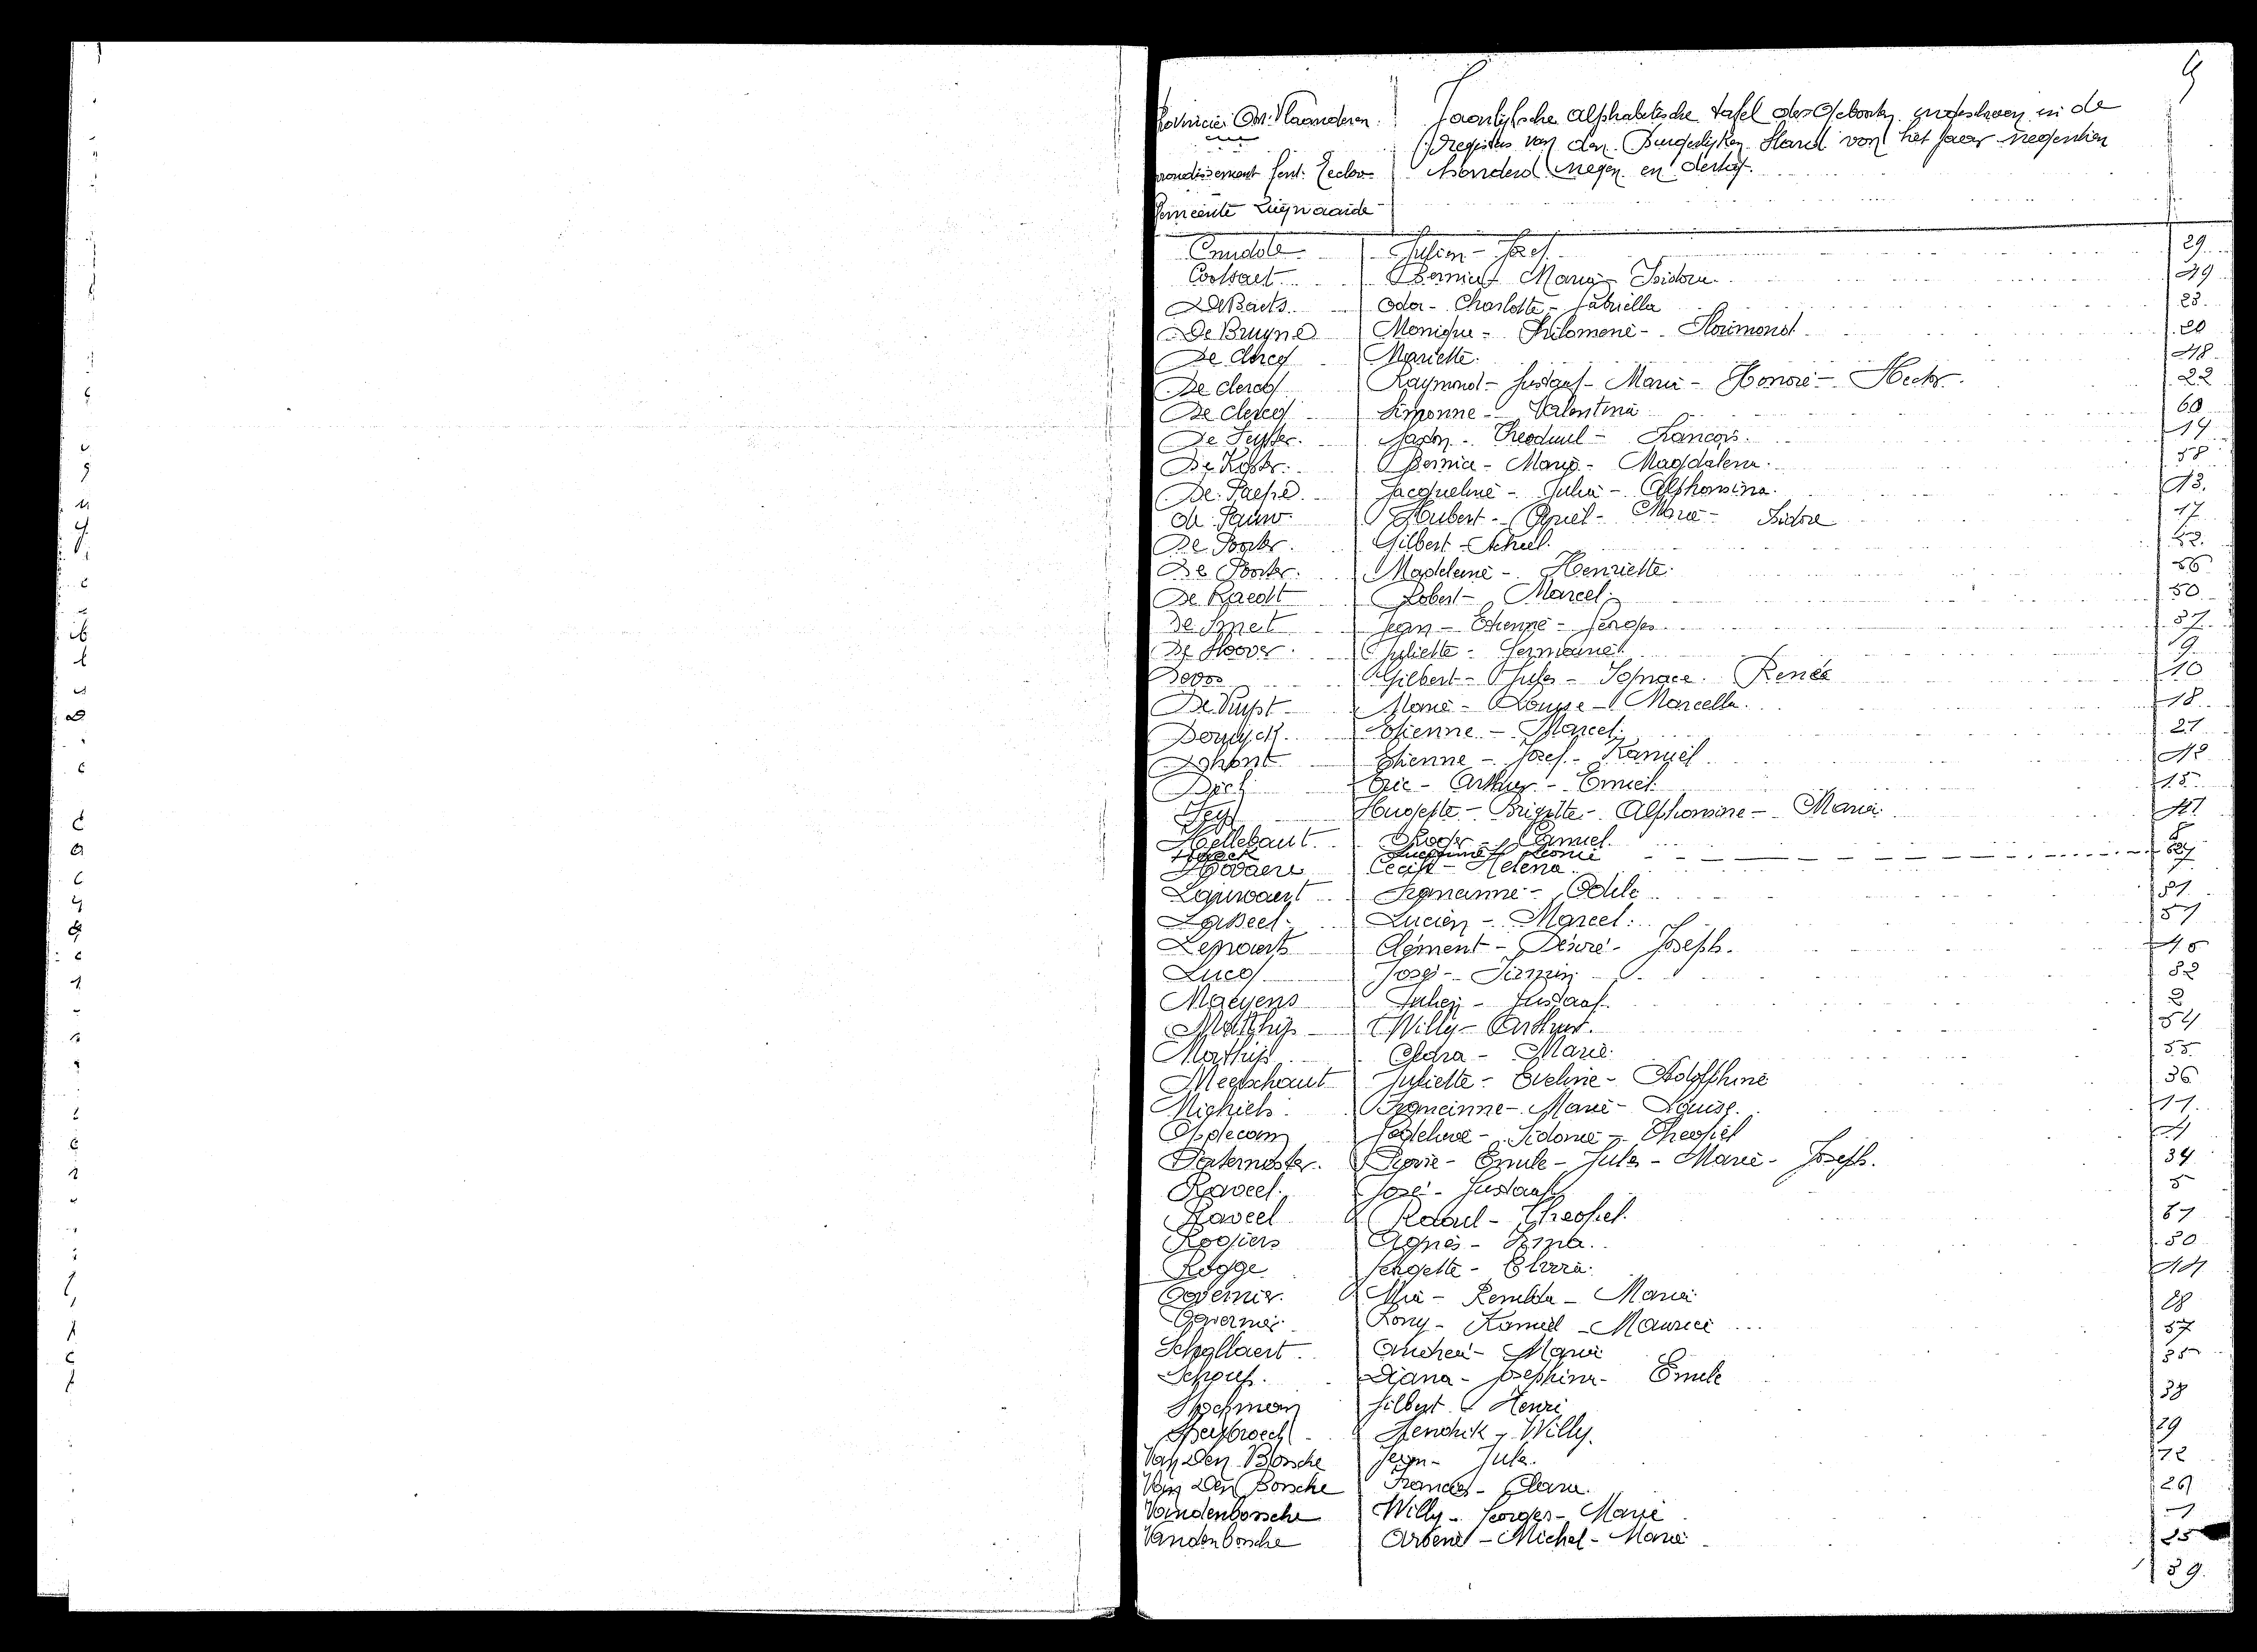 Provincie Oost-Vlaanderen. Jaarlijksche alphabetische tafel der Geboorten ingeschreven in de
Registers van den Burgerlijken Stand van het jaar negentien
Arrondissement Gent. Eecloo honderd negen en dertig.
Gemeente Zwijnaarde
Julien - Jozef 29
Cootsaet Maria - Isidora 49
De Baets Oda - Charlotte - Gabriella 23
De Bruyne Monique - Philomene - Florimond 20
De Clercq Mariette. 48
De Clercq Raymond - Gustaaf - Marie - Honoré - Hector. 22
De Clercq Simonne - Valentina 60
De Seyster. Gaston - Theoduul - Francois. 14
De Koster. Bernice - Maria - Magdalena. 58
De Paepe Jacqueline - Julia - Alphonsina. 43.
De Pauw Hubert - Marie - Isidore 17
De Poorter. Gilbert - Achiel.
De Poorter. Madeleine - Henriette. 56
De Raedt Robert - Marcel. 50
De Smet Jean - Etienne - Georges 37
De Stoover. Juliette - Germaine. 9
Devos Gilbert - Jules - Ignace. Renée 10
De Vuyst Marie - Louise - Marcella. 18
Etienne - Marcel. 21
Dhont Etienne - Jozef - Kamiel 42
Eric - Arthur - Emiel. 15
Hugette - Brigitte - Alphonsine - Maria.
Hellebaut Roger - Camiel.
Hoeck Leonie
Cecile - Helena
Lauwaert Francinne - Odile 51
Lucien - Marcel.
Clément - Désiré - Joseph.
Lucq José - Firmin 32
Maeyens Julien - Gustaaf. 2
Mathijs Willy - Arthur. 54
Mathijs Clara - Marie. 55
Meerschaut Juliette - Eveline - Adolphine 36
Michiels Francinne - Marie - Louise. 11
Opdecam Godelieve - Sidonie - Theofiel 4
Paternoster. Emile - Jules - Marie - Joseph. 34
Raveel. José - Gustaaf 5
Raveel Raoul - Theofiel. 61
Rogiers Agnes - Irma. 30
Rogge Georgette - Elvira. 44
Governier. Mia - Remilda - Maria. 28
Governier Rony - Kamiel - Maurice 57
Schollaert. Andrea - Maria 35
Diana - Josephina - Emile
Gilbert - Henri 38
Hendrik - Willy. 29
Van Den Bossche Jean - Jules. 12
Van Den Bossche Francis - Clara. 26
Vandenbossche Willy - Georges - Marie 1
Vandenbossche Arsene - Michel - Marie 25
39.